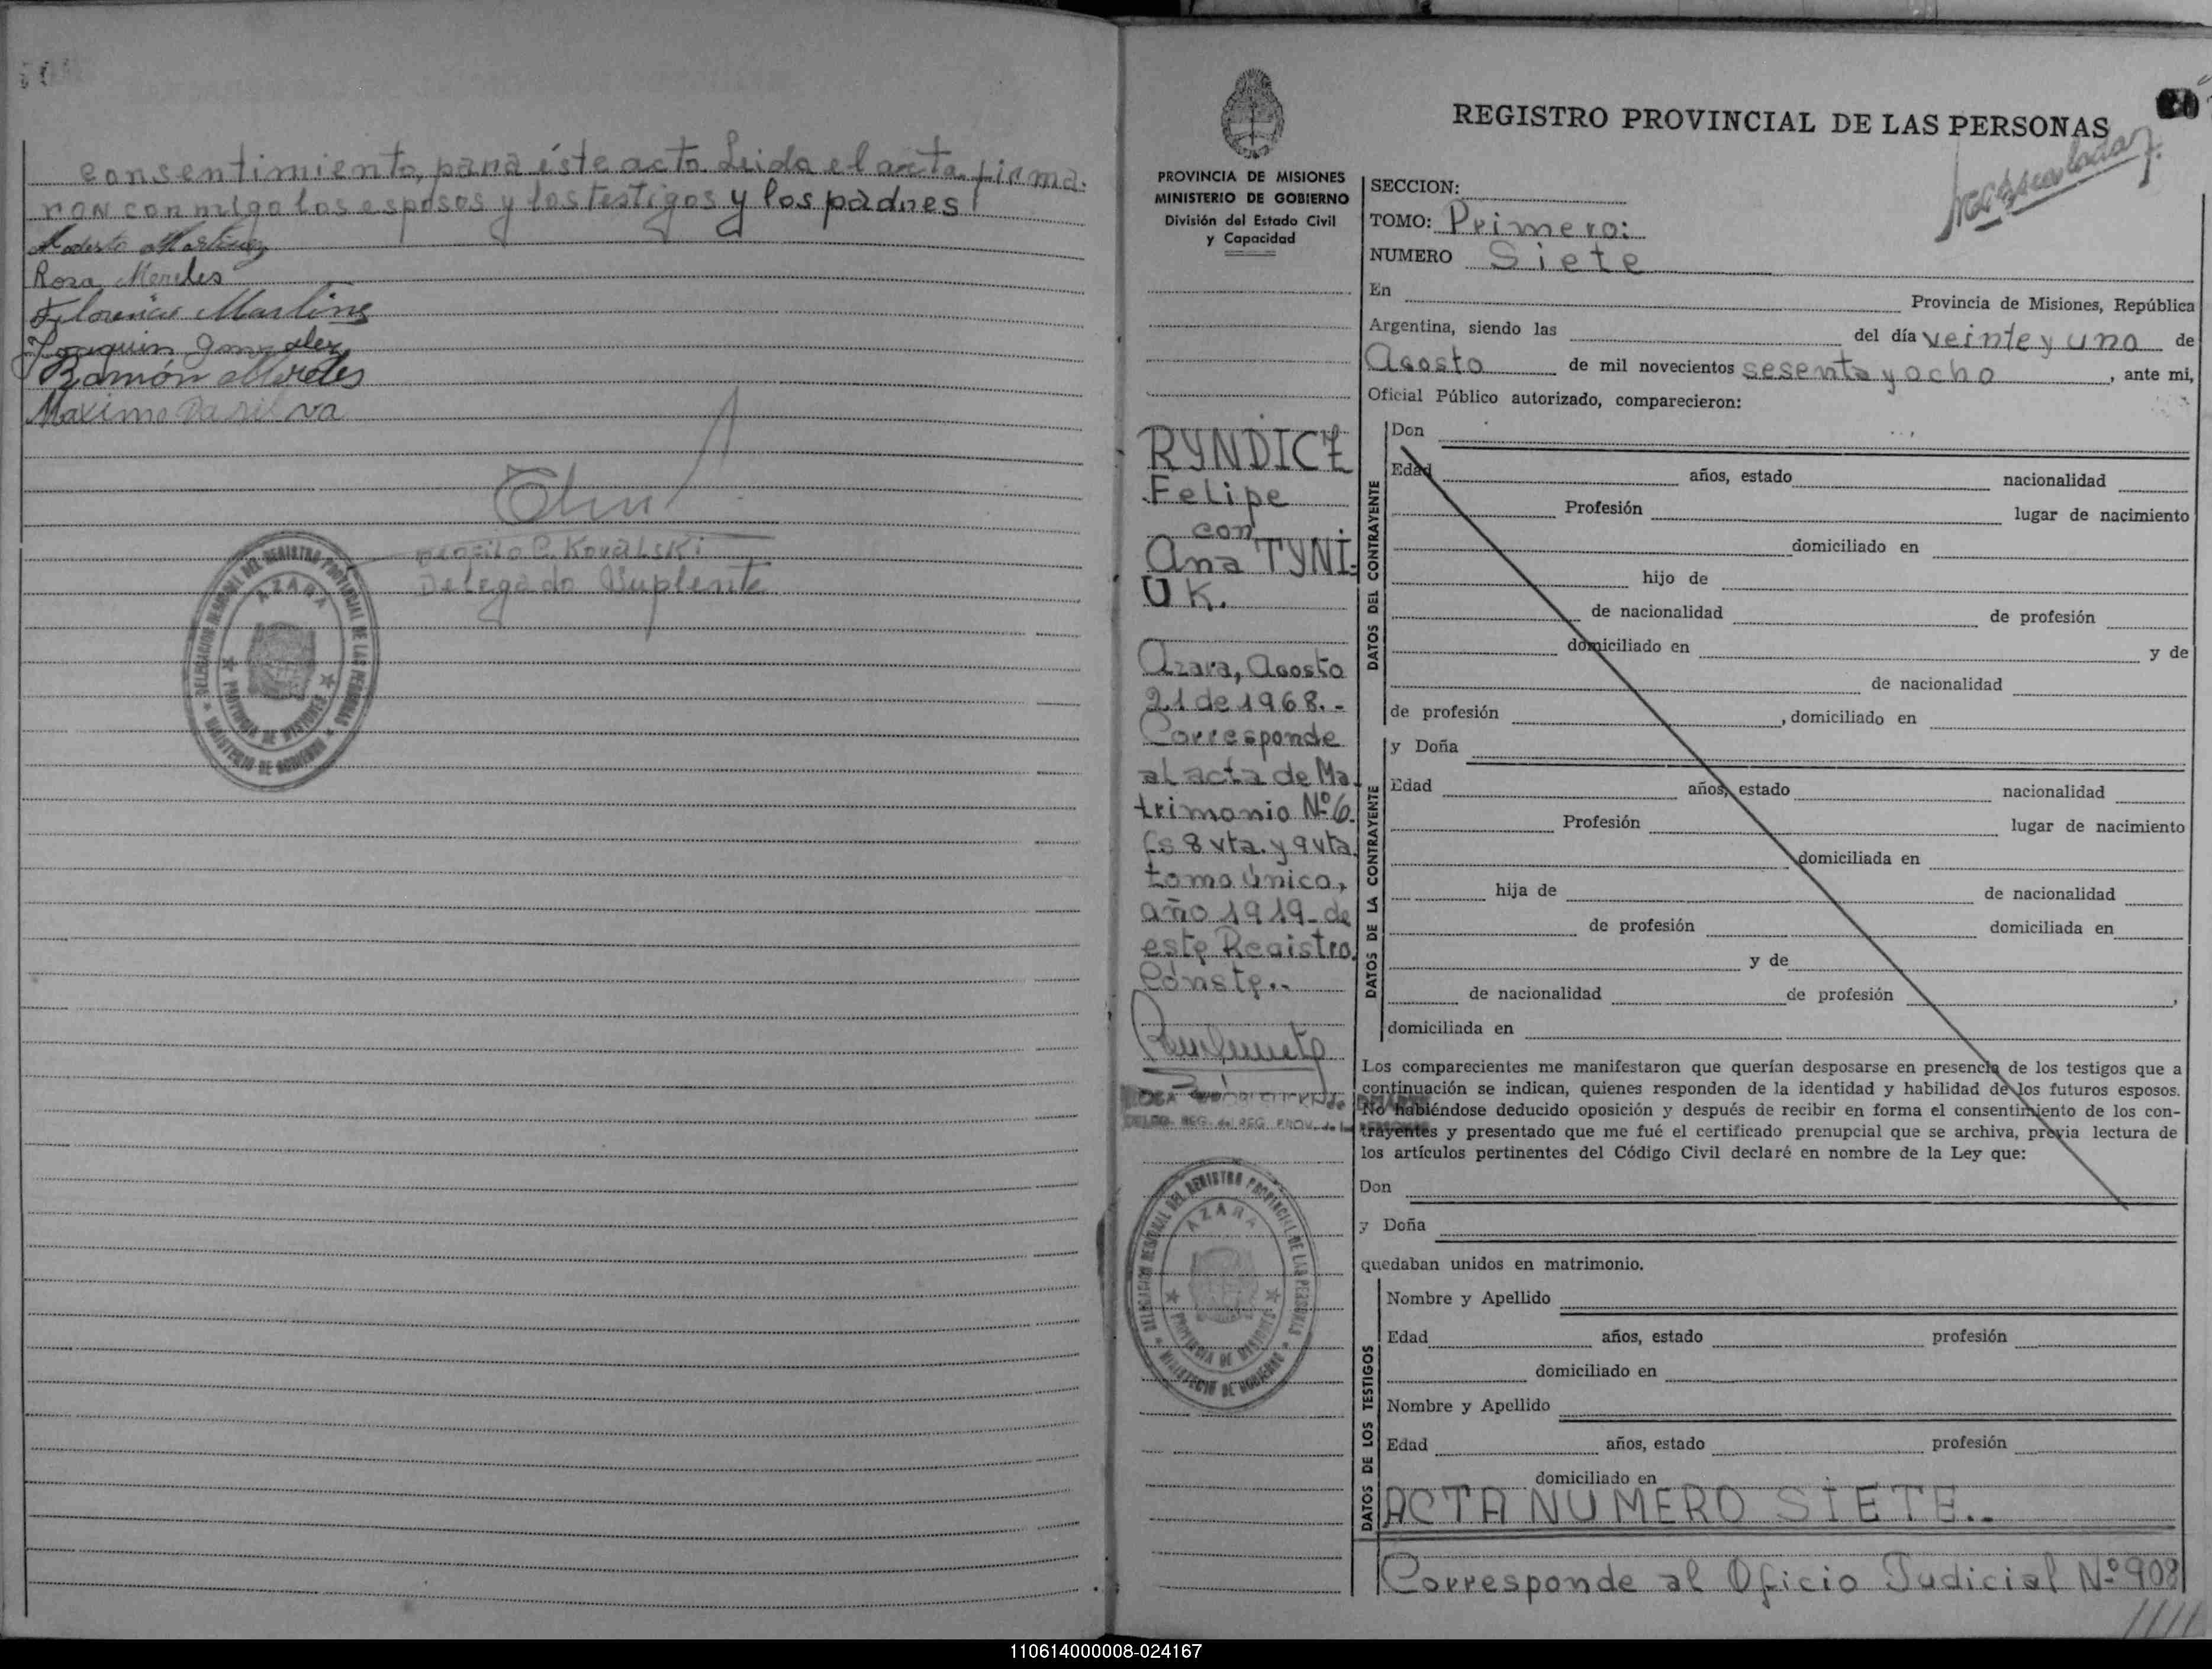 consentimiento, para éste acto. Leida el acta firma-
ron conmigo los esposos y los testigos y los padres
Modesto Martinez
Rosa Moreles
Florencio Martins
Joaquin Gonzalez
Ramón Moreles
Maximo Da silva
C. Kovalski
Delegado Suplente
DELEGACION REGIONAL DEL REGISTRO PROVINCIAL DE LAS PERSONAS
AZARA
PROVINCIA DE MISIONES
MINISTERIO DE GOBIERNO
PROVINCIA DE MISIONES
MINISTERIO DE GOBIERNO
División del Estado Civil
y Capacidad
RYNDICZ
Felipe
con
Ana TYNI-
UK.
Azara, Agosto
21 de 1968.-
Corresponde
al acta de Ma
trimonio Nº 6.
fs 8 vta. y 9 vta.
tomo único,
año 1919- de
este Registro.
Conste..
DELEGACION REGIONAL DEL REGISTRO PROVINCIAL DE LAS PERSONAS
AZARA
PROVINCIA DE MISIONES
MINISTERIO DE GOBIERNO
REGISTRO PROVINCIAL DE LAS PERSONAS
SECCION:
TOMO: Primero:
NUMERO Siete
En Provincia de Misiones, República
Argentina, siendo las del día veinte y uno de
Agosto de mil novecientos sesenta y ocho, ante mi,
Oficial Público autorizado, comparecieron:
DATOS DEL CONTRAYENTE
Don
Edad años, estado nacionalidad
Profesión lugar de nacimiento
domiciliado en
hijo de
de nacionalidad de profesión
domiciliado en y de
de nacionalidad
de profesión , domiciliado en
DATOS DE LA CONTRAYENTE
y Doña
Edad años, estado nacionalidad
Profesión lugar de nacimiento
domiciliada en
hija de de nacionalidad
de profesión domiciliada en
y de
de nacionalidad de profesión ,
domiciliada en
Los comparecientes me manifestaron que querían desposarse en presencia de los testigos que a
continuación se indican, quienes responden de la identidad y habilidad de los futuros esposos.
No habiéndose deducido oposición y después de recibir en forma el consentimiento de los con-
trayentes y presentado que me fué el certificado prenupcial que se archiva, previa lectura de
los artículos pertinentes del Código Civil declaré en nombre de la Ley que:
Don
y Doña
quedaban unidos en matrimonio.
DATOS DE LOS TESTIGOS
Nombre y Apellido
Edad años, estado profesión
domiciliado en
Nombre y Apellido
Edad años, estado profesión
domiciliado en
ACTA NUMERO SIETE..
Corresponde al Oficio Judicial Nº 908
////
110614000008-024167